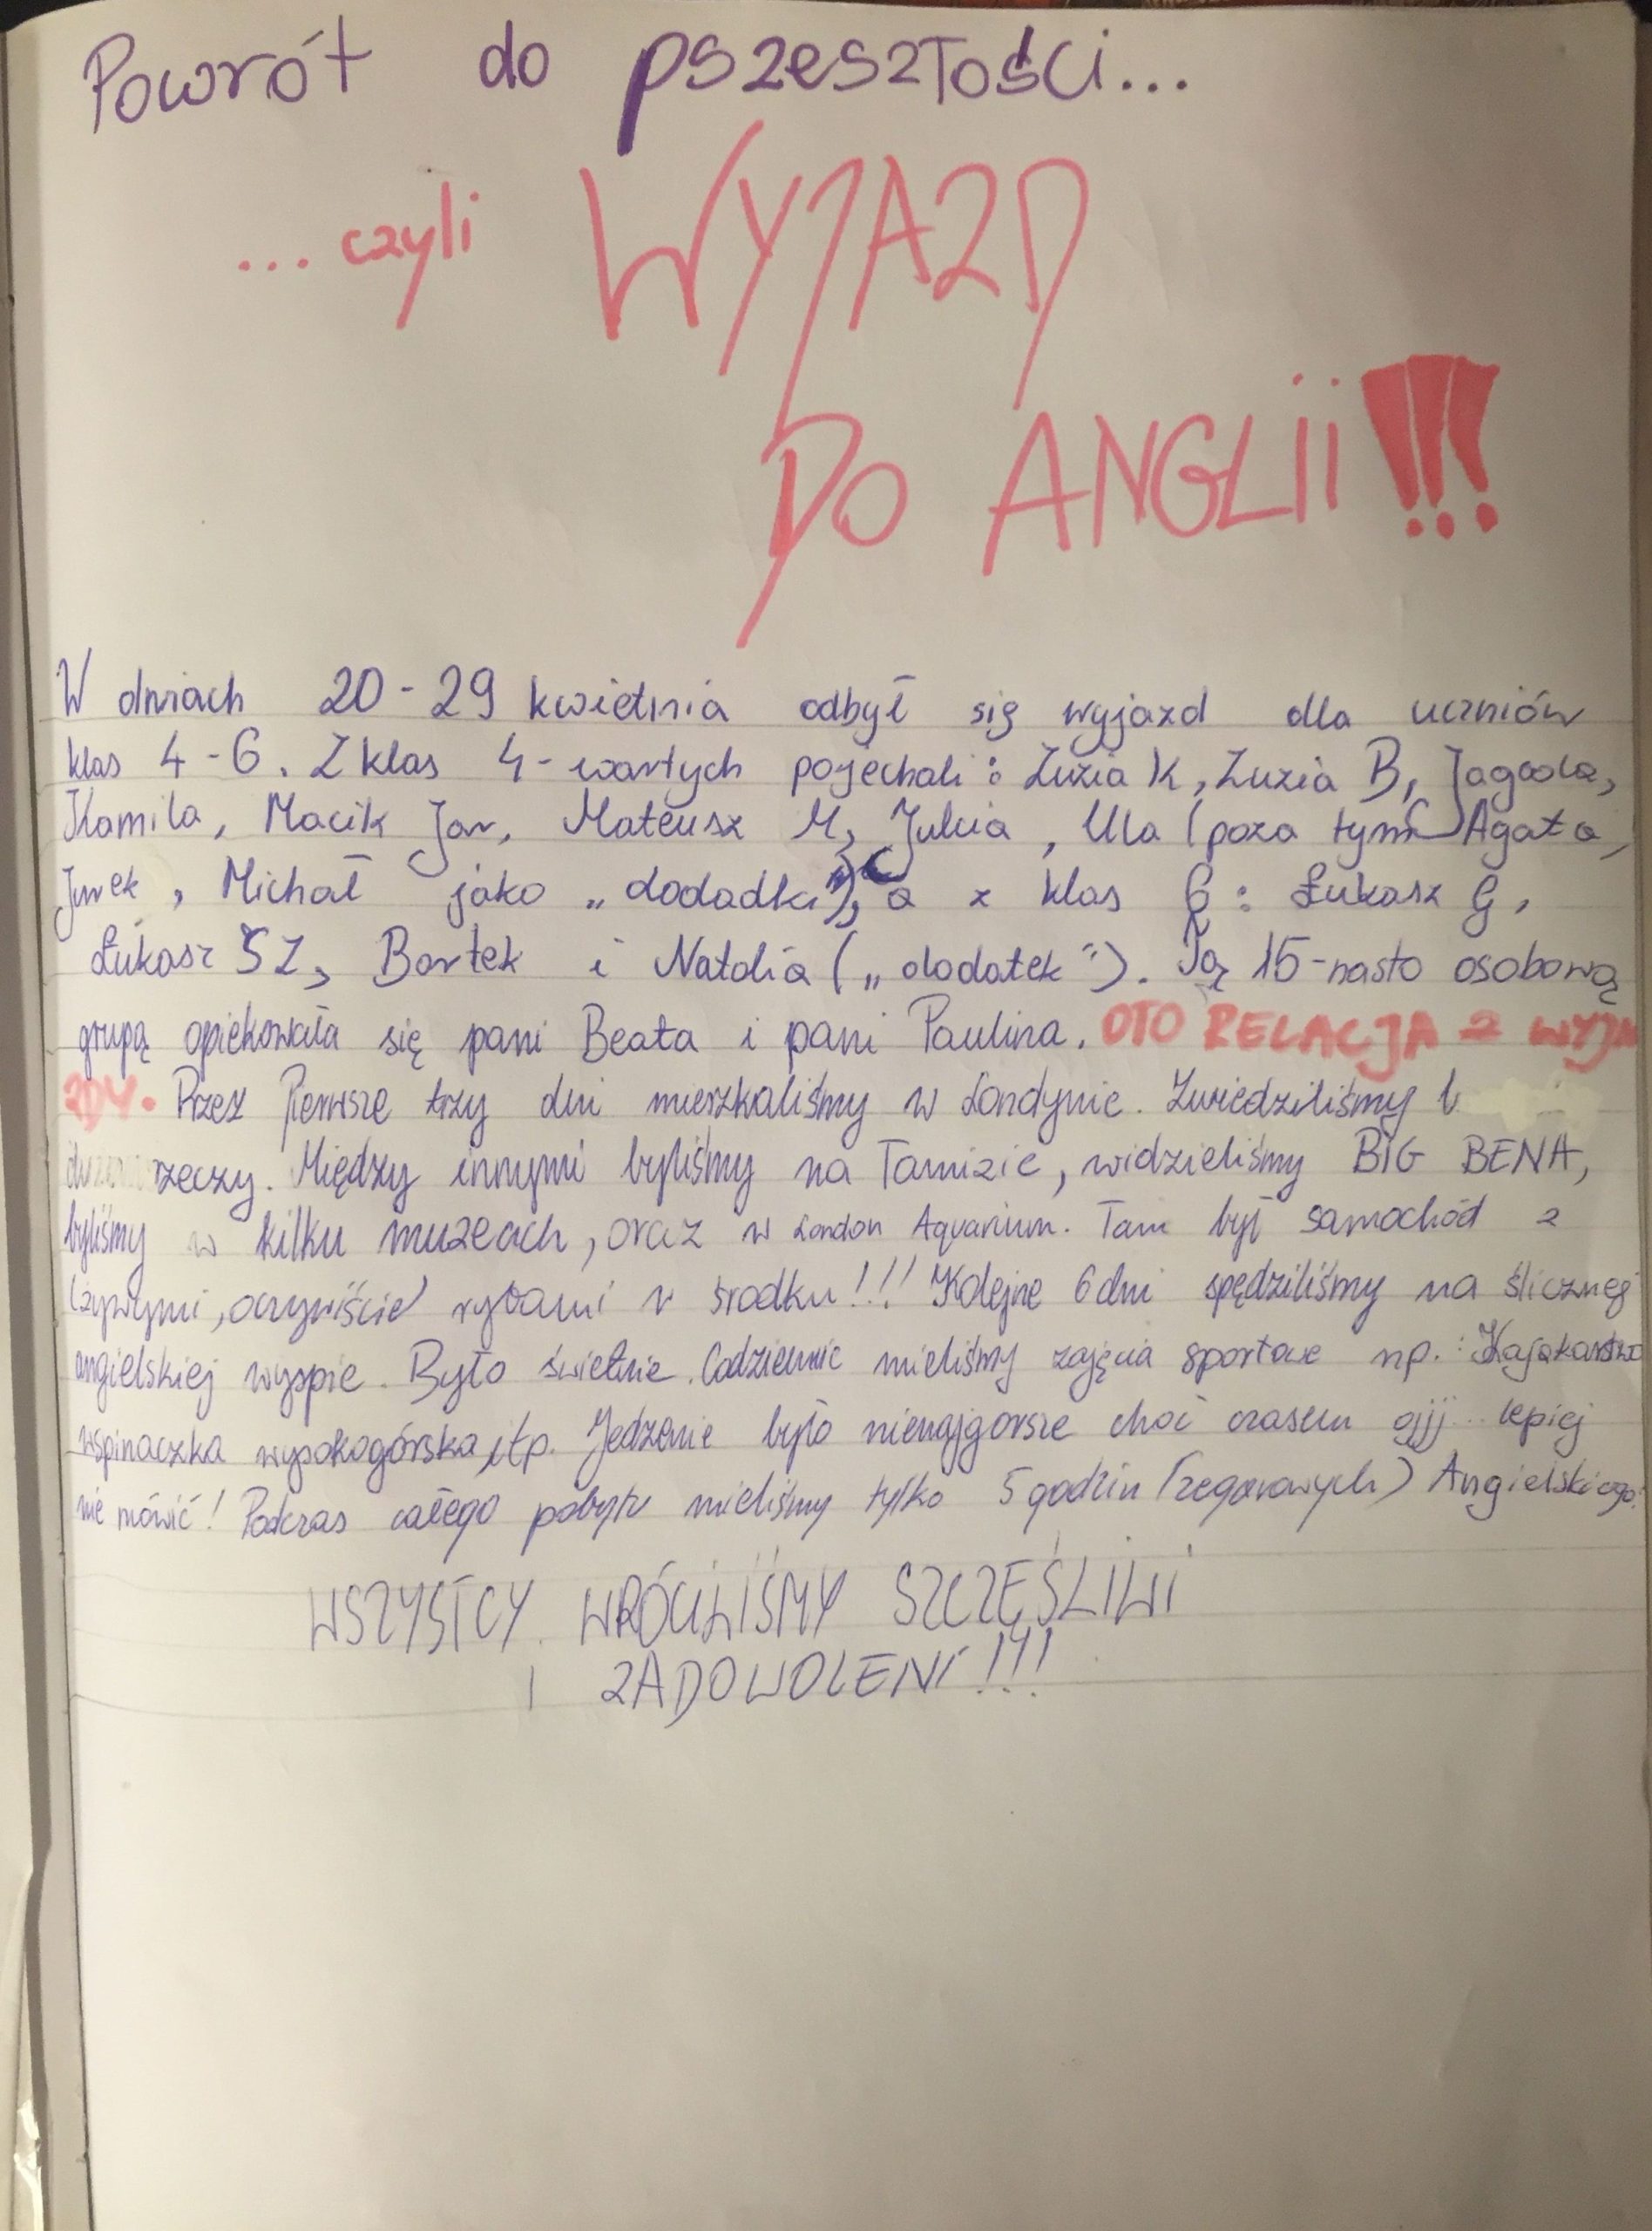 Powrót do pszeszłości...
...czyli WYJAZD
DO ANGLII!!!
W dniach 20-29 kwietnia odbył się wyjazd dla uczniów
klas 4-6. Z klas 4-wartych pojechali: Zuzia K, Zuzia B, Jagoda,
Kamila, Macik Jar, Mateusz M, Julcia, Ula (poza tym Agata,
Jurek, Michał jako „dodadki"), a z klas 6: Łukasz G,
Łukasz SZ, Bartek i Natalia („dodatek"). Tą 15-nasto osobową
grupą opiekowała się pani Beata i pani Paulina. OTO RELACJA Z WYJA
ZDY. Przez Pierwsze trzy dni mieszkaliśmy w Londynie. Zwiedziliśmy
rzeczy. Między innymi byliśmy na Tamizie, widzieliśmy BIG BENA,
byliśmy w kilku muzeach, oraz w London Aquarium. Tam był samochód z
(żywymi, oczywiście) rybami w środku!!! Kolejne 6 dni spędziliśmy na ślicznej
angielskiej wyspie. Było świetnie. Codziennie mieliśmy zajęcia sportowe np.: Kajakarstwo
wspinaczka wysokogórska, itp. Jedzenie było nienajgorsze choć czasem ojjj.. lepiej
nie mówić! Podczas całego pobytu mieliśmy tylko 5 godzin (zegarowych) Angielskiego!
WSZYSTCY WRÓCILIŚMY SZCZĘŚLIWI
I ZADOWOLENI!!!